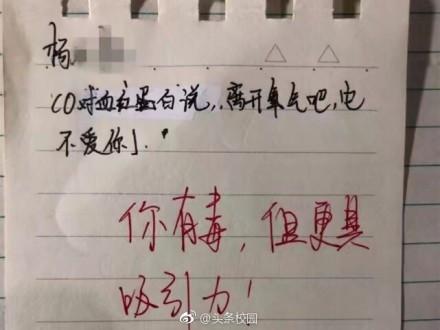 杨
CO对血红蛋白说，离开氧气吧，它
不爱你」.
你有毒，但更具
吸引力！
@头条校园